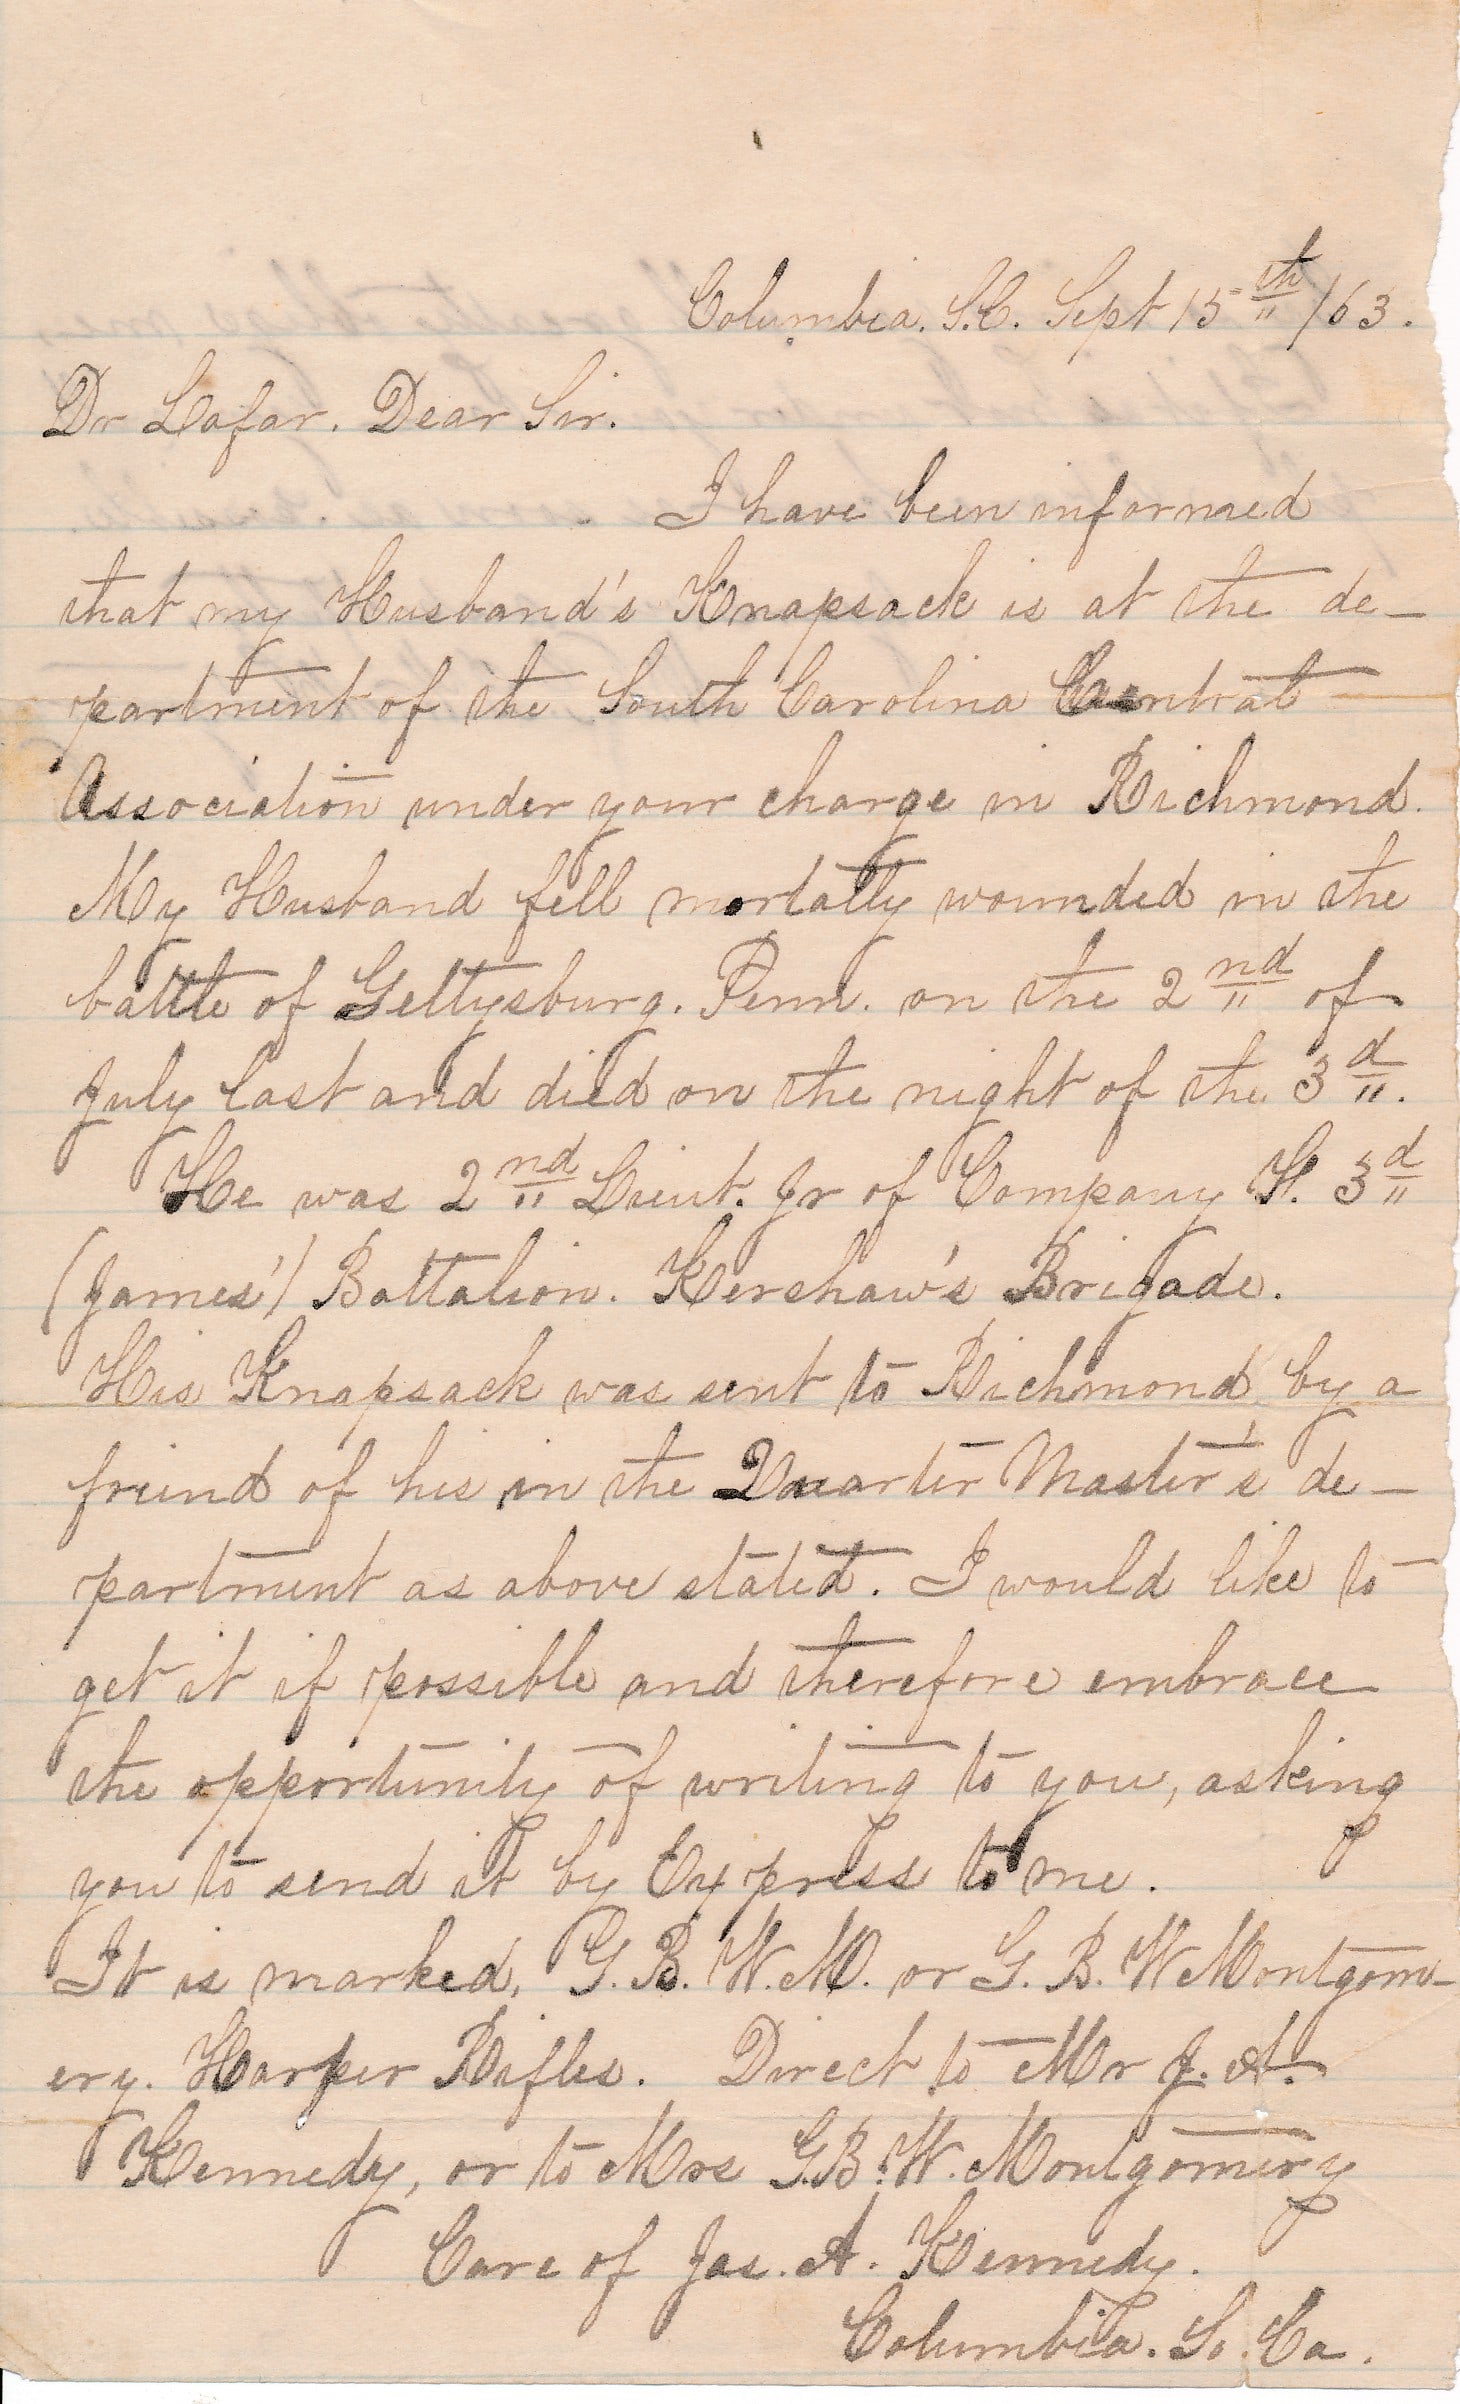 Columbia. S.C. Sept 15th /63.
Dr Lafar. Dear Sir.
I have been informed
that my Husband's Knapsack is at the de-
partment of the South Carolina Central
Association under your charge in Richmond.
My Husband fell mortally wounded in the
battle of Gettysburg. Penn. on the 2nd of
July last and died on the night of the 3d.
He was 2nd Lieut. Jr of Company H. 3d
(James') Battalion. Kershaw's Brigade.
His Knapsack was sent to Richmond by a
friend of his in the Quarter Master's de-
partment as above stated. I would like to
get it if possible and therefore embrace
the opportunity of writing to you, asking
you to send it by Express to me.
It is marked, G. B. W. M. or G. B. W Montgom-
ery. Harper Rifles. Direct to Mr J. A.
Kennedy, or to Mrs G. B. W. Montgomery
Care of Jas. A. Kennedy.
Columbia. So. Ca.